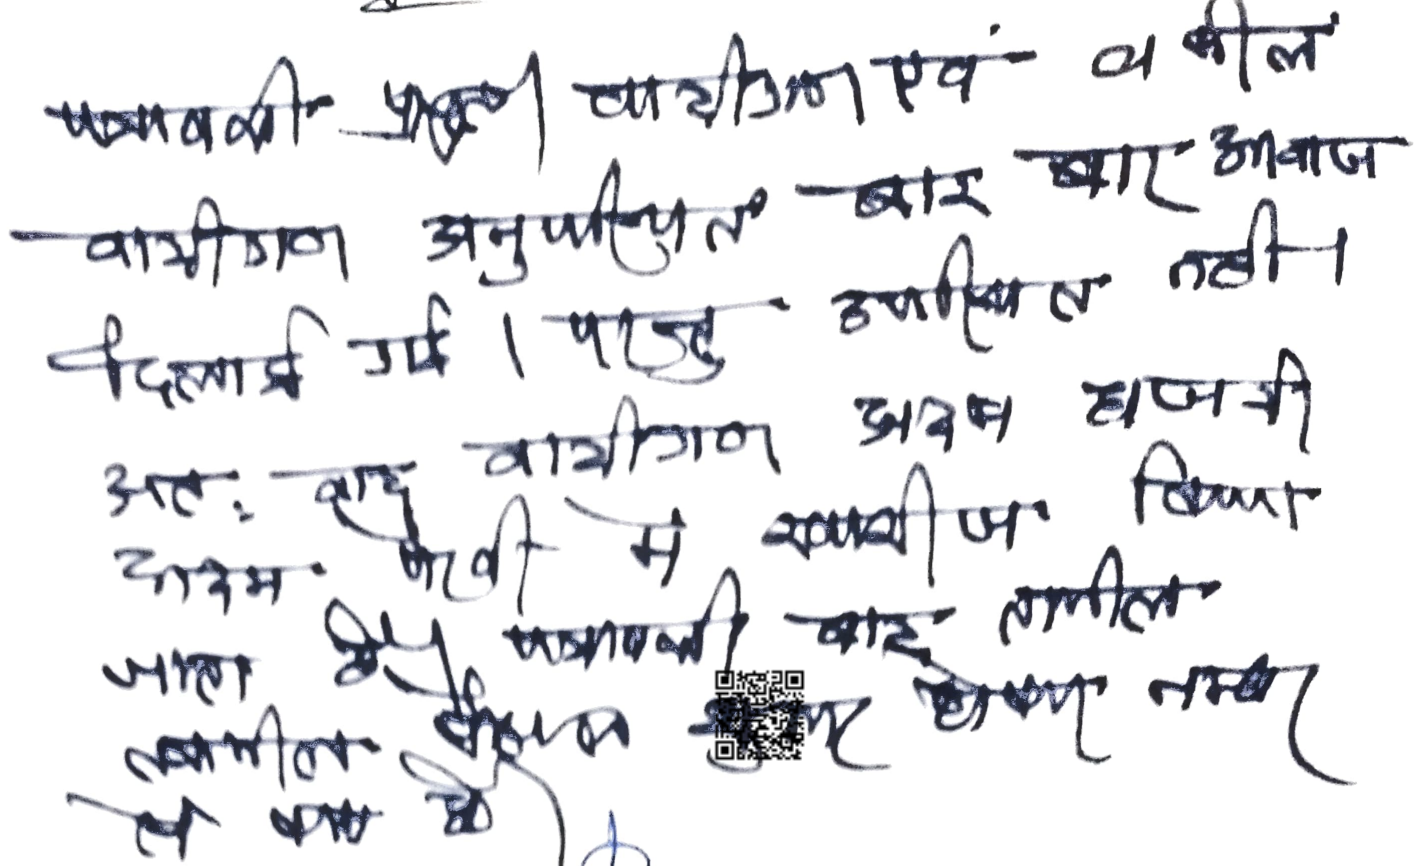 पत्रावली प्रस्तुत। वादीगण एवं वकील
वादीगण अनुपस्थित बार बार आवाज
दिलाई गई। परन्तु उपस्थित नहीं।
अतः वाद वादीगण अदम हाजरी
अदम पैरवी में खारीज किया
जाता है। पत्रावली बाद तामील
तकमील फैसल शुमार होकर नम्बर
से कम हो